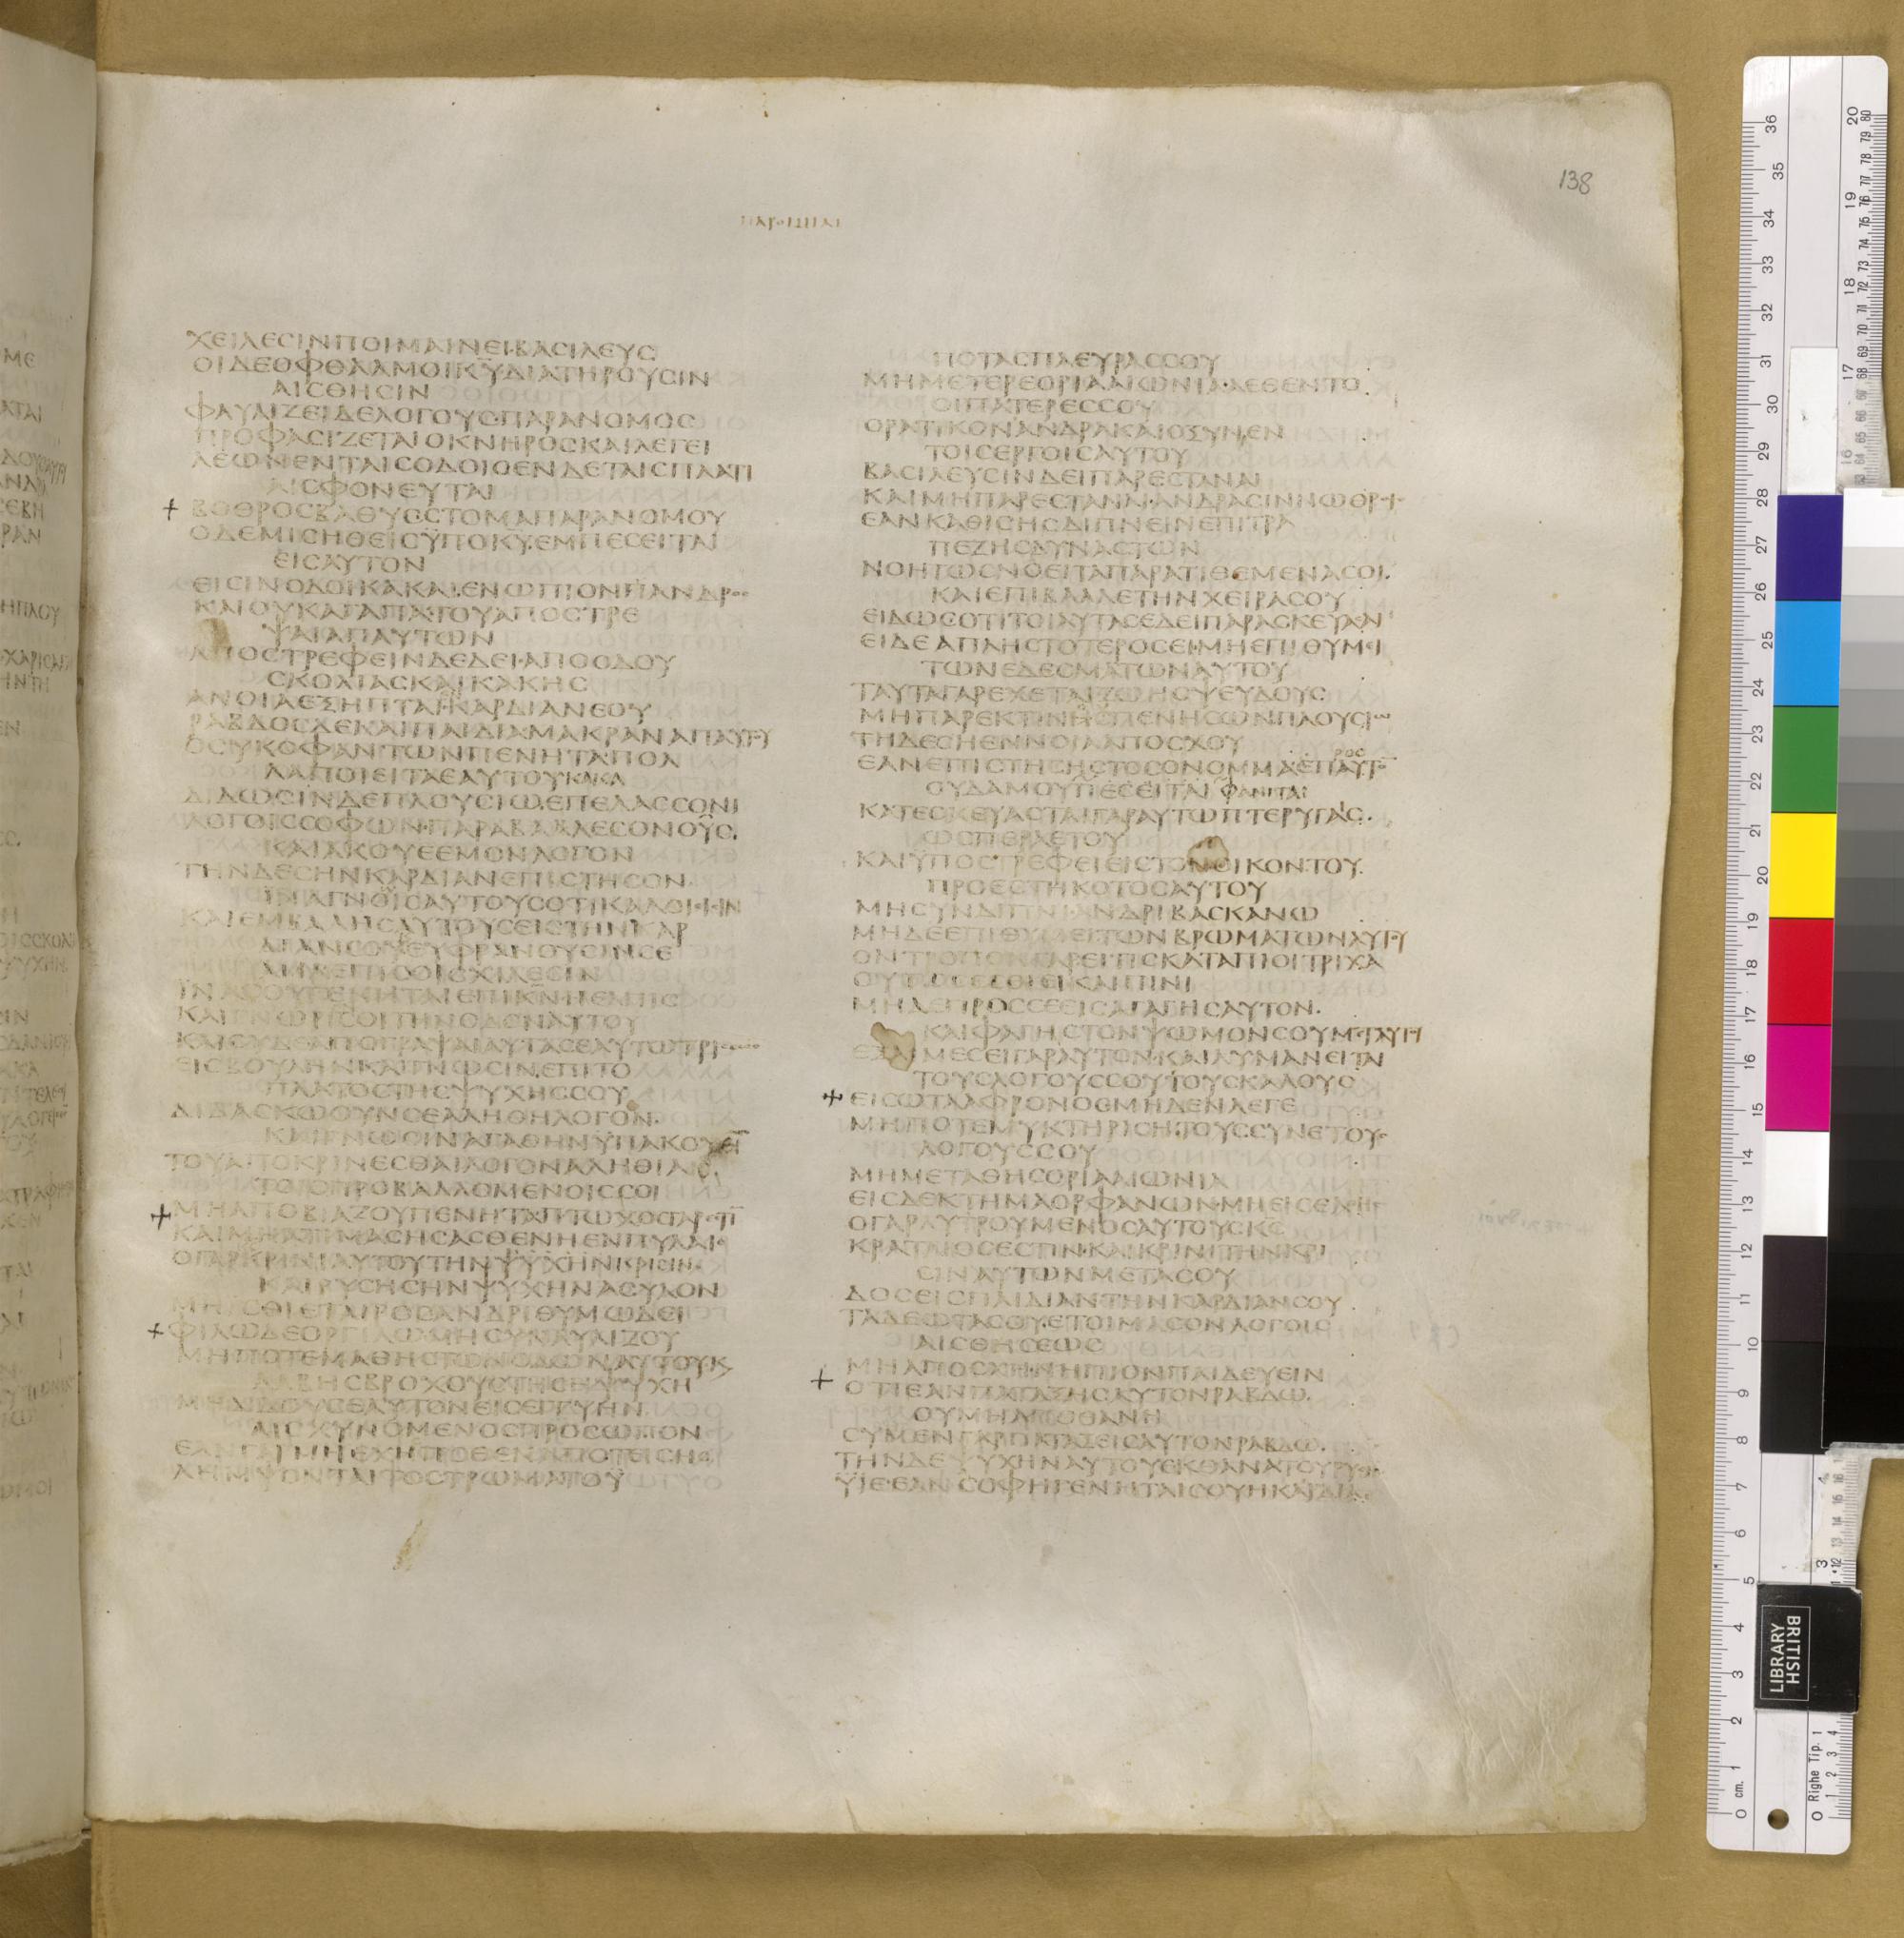 138
ΠΑΡΟΙΜΙΑΙ
ΧΕΙΛΕСΙΝΠΟΙΜΑΙΝΕΙ·ΒΑСΙΛΕΥС
ΟΙΔΕΟΦΘΑΛΜΟΙΚΥΔΙΑΤΗΡΟΥСΙΝ
ΑΙСΘΗСΙΝ
ΦΑΥΛΙΖΕΙΔΕΛΟΓΟΥСΠΑΡΑΝΟΜΟС
ΠΡΟΦΑСΙΖΕΤΑΙΟΚΝΗΡΟСΚΑΙΛΕΓΕΙ
ΛΕΩΝΕΝΤΑΙСΟΔΟΙСΕΝΔΕΤΑΙСΠΛΑΤΙ
ΑΙСΦΟΝΕΥΤΑΙ
ΒΟΘΡΟСΒΑΘΥССΤΟΜΑΠΑΡΑΝΟΜΟΥ
ΟΔΕΜΙСΗΘΕΙСΫΠΟΚΥ·ΕΜΠΕСΕΙΤΑΙ
ΕΙСΑΥΤΟΝ
ΕΙСΙΝΟΔΟΙΚΑΚΑΙ·ΕΝΩΠΙΟΝΑΝΔΡοσ
ΚΑΙΟΥΚΑΓΑΠΑ·ΤΟΥΑΠΟСΤΡΕ
ΨΑΙΑΠΑΥΤΩΝ
ΑΠΟСΤΡΕΦΕΙΝΔΕΔΕΙ·ΑΠΟΟΔΟΥ
СΚΟΛΙΑСΚΑΙΚΑΚΗС
ΑΝΟΙΑΕΞΗΠΤΑΙ·ΚΑΡΔΙΑΝΕΟΥ
ΡΑΒΔΟСΔΕΚΑΙΠΑΙΔΙΑΜΑΚΡΑΝΑΠΑΥΤΟΥ
ΟСΥΚΟΦΑΝΤΩΝΠΕΝΗΤΑΠΟΛ
ΛΑΠΟΙΕΙΤΑΕΑΥΤΟΥΚΑΚΑ
ΔΙΔΩСΙΝΔΕΠΛΟΥСΙΩ·ΕΠΕΛΑССΟΝΙ
ΛΟΓΟΙССΟΦΩΝ·ΠΑΡΑΒΑΛΛΕСΟΝΟΥС.
ΚΑΙΑΚΟΥΕΕΜΟΝΛΟΓΟΝ
ΤΗΝΔΕСΗΝΚΑΡΔΙΑΝΕΠΙСΤΗСΟΝ
ΚΑΙΕΜΒΑΛΗСΑΥΤΟΥСΕΙСΤΗΝΚΑΡ
ΔΙΑΝСΟΥΕΥΦΡΑΝΟΥСΙΝСΕ
ΙΝΑСΟΥΓΕΝΗΤΑΙΕΠΙΚΝΗΕΛΠΙС
ΚΑΙΓΝΩΡΙСΟΙΤΗΝΟΔΟΝΑΥΤΟΥ
ΕΙСΒΟΥΛΗΝΚΑΙΓΝΩСΙΝ·ΕΠΙΤΟ
ΠΛΑΤΟСΤΗСΨΥΧΗССΟΥ
ΔΙΔΑСΚΩΟΥΝСΕΑΛΗΘΗΛΟΓΟΝ·
ΚΑΙΓΝΩСΙΝΑΓΑΘΗΝΫΠΑΚΟΥΕΙ
ΤΟΥΑΠΟΚΡΙΝΕСΘΑΙΛΟΓΟΝΑΛΗΘΙΑС
ΤΟΙСΠΡΟΒΑΛΛΟΜΕΝΟΙССΟΙ
ΜΗΑΠΟΒΙΑΖΟΥΠΕΝΗΤΑΠΤΩΧΟСΓΑΡΕСΤΙ
ΚΑΙΜΗΑΤΙΜΑСΗСΑСΘΕΝΗΕΝΠΥΛΑΙС
ΟΓΑΡΚСΚΡΙΝΙΑΥΤΟΥΤΗΝΨΥΧΗΝΚΡΙСΙΝ
ΚΑΙΡΥСΗСΗΝΨΥΧΗΝΑСΥΛΟΝ
ΜΗΙСΘΙΕΤΑΙΡΟСΑΝΔΡΙΘΥΜΩΔΕΙ
ΦΙΛΩΔΕΟΡΓΙΛΩΜΗСΥΝΑΥΛΙΖΟΥ
ΜΗΠΟΤΕΜΑΘΗСΤΩΝΟΔΩΝΑΥΤΟΥΚ
ΛΑΒΗСΒΡΟΧΟΥСΤΗСΗΨΥΧΗ
ΜΗΔΙΔΟΥСΕΑΥΤΟΝΕΙСΕΓΓΥΗΝ
ΑΙСΧΥΝΟΜΕΝΟСΠΡΟСΩΠΟΝ
ΕΑΝΓΑΡΜΗΕΧΗСΠΟΘΕΝΑΠΟΤΕΙСΗС
ΛΗΜΨΟΝΤΑΙΤΟСΤΡΩΜΑΤΟΫ
ΠΟΤΑСΠΛΕΥΡΑССΟΥ
ΜΗΜΕΤΕΡΕΟΡΙΑΑΙΩΝΙΑ·ΑΕΘΕΝΤΟ
ΟΙΠΑΤΕΡΕССΟΥ
ΟΡΑΤΙΚΟΝΑΝΔΡΑΚΑΙΟΞΥΝΕΝ
ΤΟΙСΕΡΓΟΙСΑΥΤΟΥ
ΒΑСΙΛΕΥСΙΝΔΕΙΠΑΡΕСΤΑΝΑΙ
ΚΑΙΜΗΠΑΡΕСΤΑΝΑΙ·ΑΝΔΡΑСΙΝΝΩΘΡΟΙ
ΕΑΝΚΑΘΙСΗСΔΙΠΝΕΙΝΕΠΙΤΡΑ
ΠΕΖΗСΔΥΝΑСΤΩΝ
ΝΟΗΤΩСΝΟΕΙΤΑΠΑΡΑΤΙΘΕΜΕΝΑСΟΙ.
ΚΑΙΕΠΙΒΑΛΛΕΤΗΝΧΕΙΡΑСΟΥ
ΕΙΔΩСΟΤΙΤΟΙΑΥΤΑСΕΔΕΙΠΑΡΑСΚΕΥΑΝ
ΕΙΔΕΑΠΛΗСΤΟΤΕΡΟСΕΙ·ΜΗΕΠΙΘΥΜΙ
ΤΩΝΕΔΕСΜΑΤΩΝΑΥΤΟΥ
ΤΑΥΤΑΓΑΡΕΧΕΤΑΙΖΩΗСΨΕΥΔΟΥС
ΜΗΠΑΡΕΚΤΙΝΗСΠΕΝΗСΩΝΠΛΟΥСΙω
ΤΗΔΕСΗΕΝΝΟΙΑΑΠΟСΧΟΥ
ΕΑΝΕΠΙСΤΗСΗСΤΟСΟΝΟΜΜΑΕΠΑΥΤΟ
ΡΟС
ΟΥΔΑΜΟΥΠΕСΕΙΤΑΙ ΦΑΝΙΤΑΙ
ΚΑΤΕСΚΕΥΑСΤΑΙΓΑΡΑΥΤΩΠΤΕΡΥΓΑΙС.
ΩСΠΕΡΑΕΤΟΥ
ΚΑΙΥΠΟСΤΡΕΦΕΙΕΙСΤΟΝΟΙΚΟΝ·ΤΟΥ
ΠΡΟΕСΤΗΚΟΤΟСΑΥΤΟΥ
ΜΗСΥΝΔΙΠΝΙ·ΑΝΔΡΙΒΑСΚΑΝΩ
ΜΗΔΕΕΠΙΘΥΜΕΙΤΩΝΒΡΩΜΑΤΩΝΑΥΤΟΥ
ΟΝΤΡΟΠΟΝΓΑΡΕΙΤΙСΚΑΤΑΠΙΟΙΤΡΙΧΑ
ΟΥΤΩСΕСΘΙΕΙΚΑΙΠΙΝΙ
ΜΗΔΕΠΡΟССΕΕΙСΑΓΑΓΗСΑΥΤΟΝ·
ΚΑΙΦΑΓΗСΤΟΝΨΩΜΟΝСΟΥΜΕΤΑΥΤΟΥ
ΕΞΑΙΜΕСΕΙΓΑΡΑΥΤΟΝ·ΚΑΙΛΥΜΑΝΕΙΤΑΙ
ΤΟΥСΛΟΓΟΥССΟΥΤΟΥСΚΑΛΟΥС
ΕΙСΩΤΑΑΦΡΟΝΟСΜΗΔΕΝΛΕΓΕ
ΜΗΠΟΤΕΜΥΚΤΗΡΙСΗ·ΤΟΥССΥΝΕΤΟΥС
ΛΟΓΟΥССΟΥ
ΜΗΜΕΤΑΘΗСΟΡΙΑΑΙΩΝΙΑ
ΕΙСΔΕΚΤΗΜΑΟΡΦΑΝΩΝ·ΜΗΕΙСΕΛΘΗС
ΟΓΑΡΛΥΤΡΟΥΜΕΝΟСΑΥΤΟΥСΚС
ΚΡΑΤΑΙΟСΕСΤΙΝ·ΚΑΙΚΡΙΝΙΤΗΝΚΡΙ
СΙΝΑΥΤΩΝΜΕΤΑСΟΥ
ΔΟСΕΙСΠΑΙΔΙΑΝΤΗΝΚΑΡΔΙΑΝСΟΥ
ΤΑΔΕΩΤΑСΟΥ·ΕΤΟΙΜΑСΟΝΛΟΓΟΙС
ΑΙСΘΗСΕΩС
ΜΗΑΠΟСΧΗ·ΝΗΠΙΟΝΠΑΙΔΕΥΕΙΝ
ΟΤΙΕΑΝΠΑΤΑΞΗСΑΥΤΟΝΡΑΒΔΩ.
ΟΥΜΗΑΠΟΘΑΝΗ
СΥΜΕΝΓΑΡΠΑΤΑΞΕΙСΑΥΤΟΝΡΑΒΔΩ.
ΤΗΝΔΕΨΥΧΗΝΑΥΤΟΥΕΚΘΑΝΑΤΟΥΡΥСΗ
ΫΙΕ·ΕΑΝСΟΦΗΓΕΝΗΤΑΙСΟΥΗΚΑΡΔΙΑ
BRITISH
LIBRARY